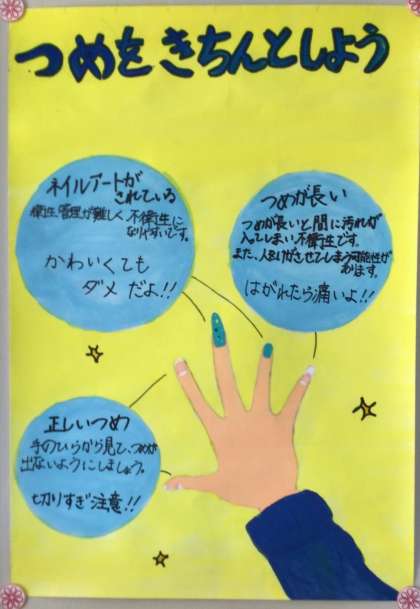 つめをきちんとしよう
ネイルアートが
されている
衛生管理が難しく不衛生に
なりやすいです。
かわいくても
ダメだよ!!
つめが長い
つめが長いと間に汚れが
入ってしまい不衛生です。
また、人をけがさせてしまう可能性が
あります。
はがれたら痛いよ!!
正しいつめ
手のひらから見て、つめが
出ないようにしましょう。
切りすぎ注意!!